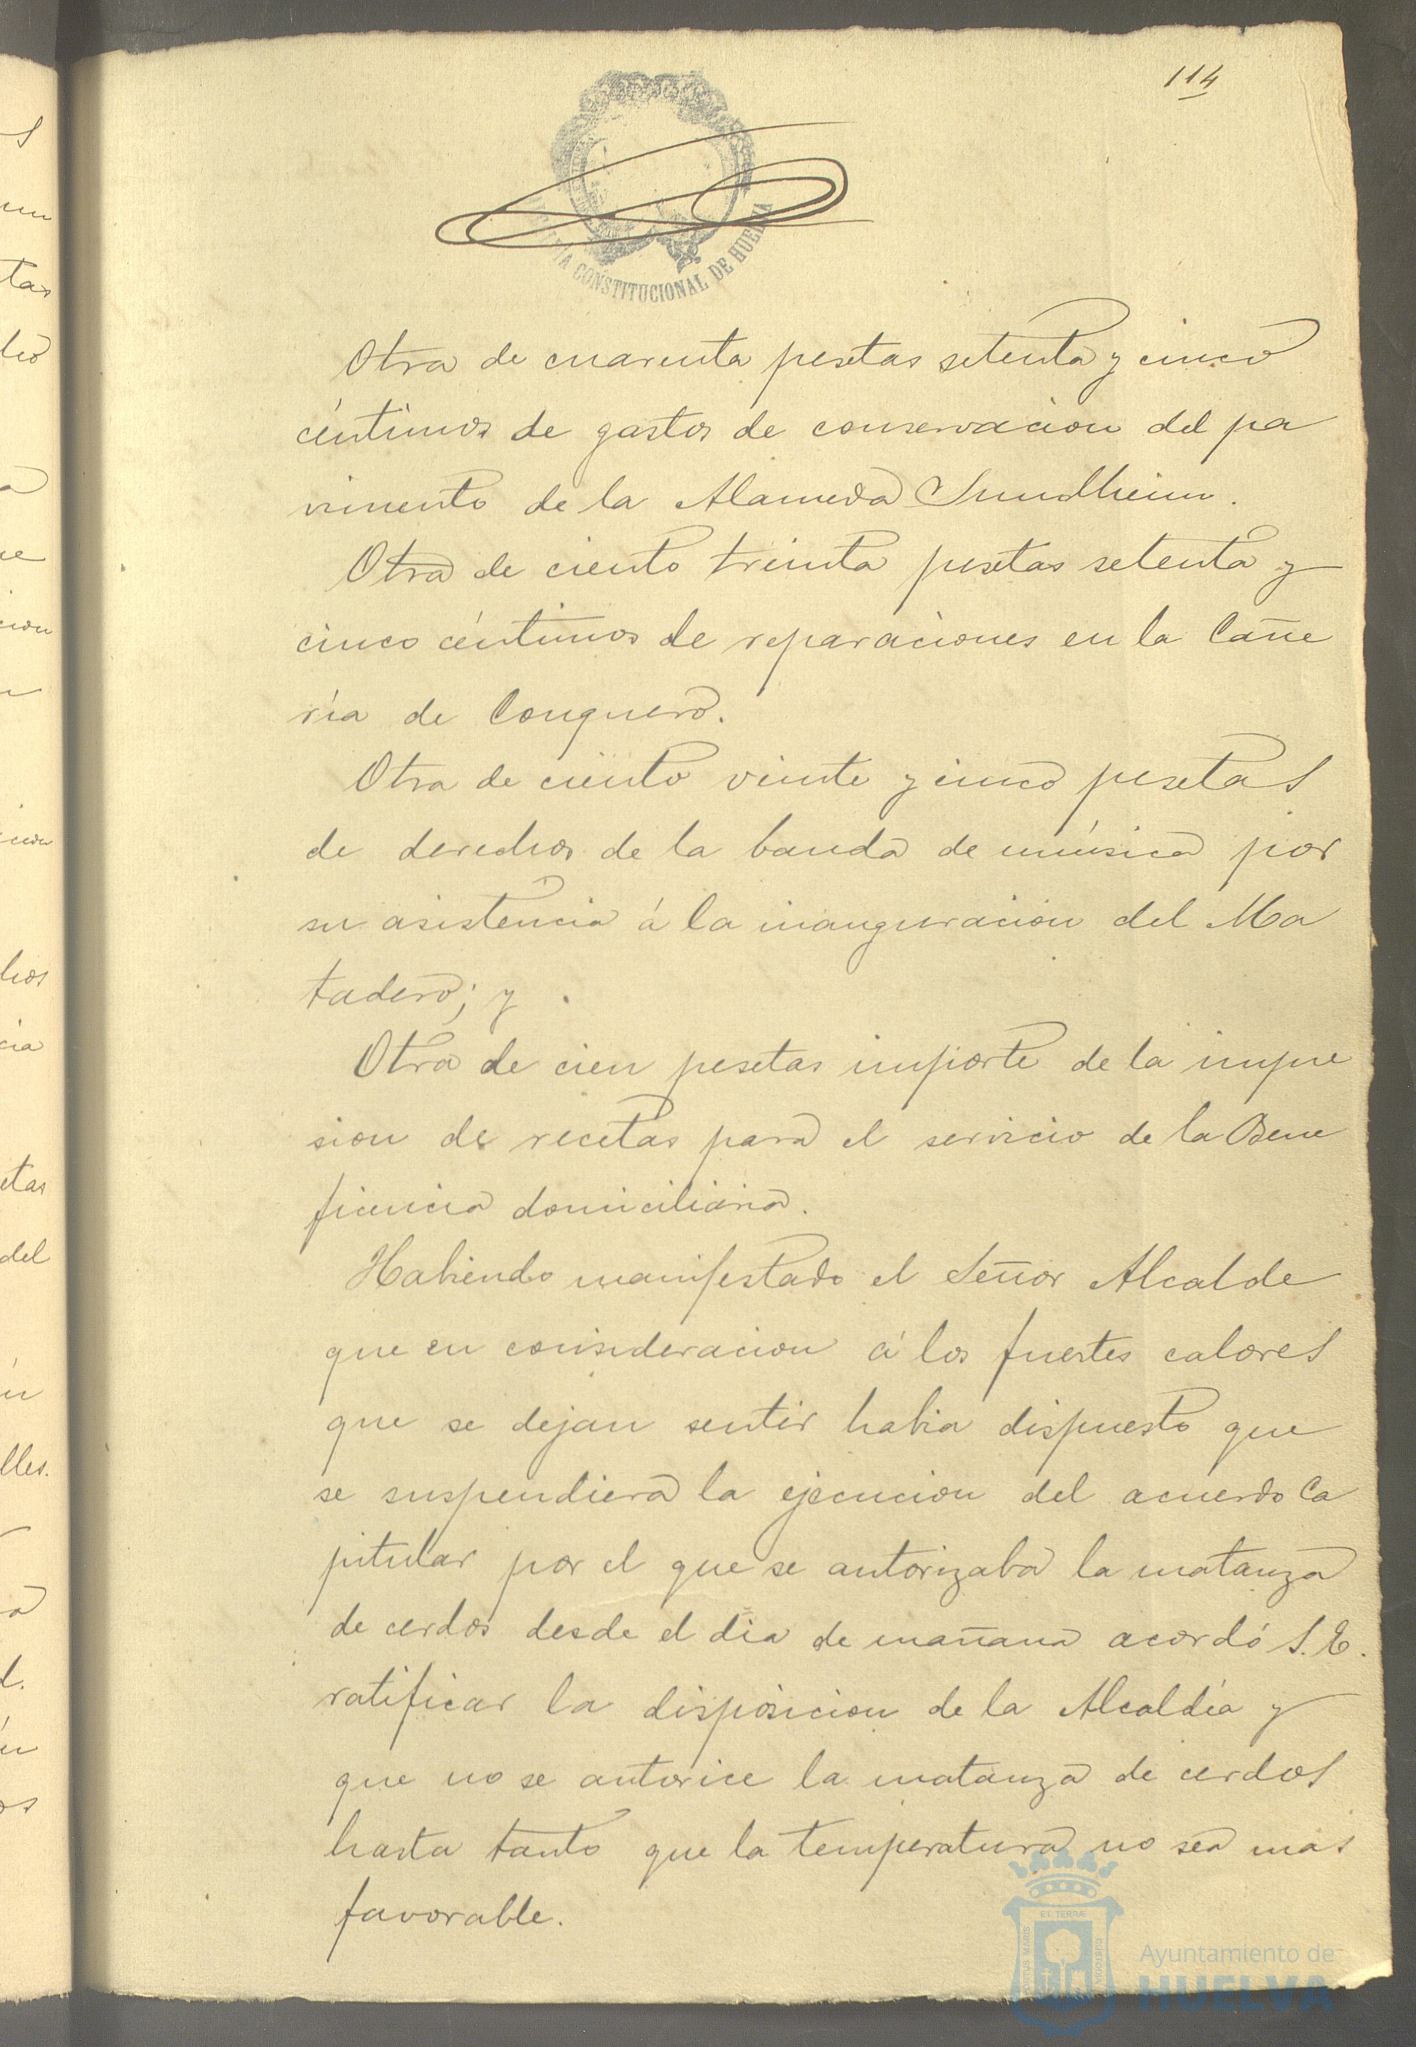 114
ALCALDIA CONSTITUCIONAL DE HUELVA
Otra de cuarenta pesetas setenta y cinco
céntimos de gastos de conservacion del pa
vimento de la Alameda Sundheim.
Otra de ciento treinta pesetas setenta y
cinco céntimos de reparaciones en la Cañe
ría de Conquero.
Otra de ciento veinte y cinco pesetas
de derechos de la banda de música por
su asistencia á la inauguracion del Ma
tadero; y
Otra de cien pesetas importe de la impre
sion de recetas para el servicio de la Bene
ficencia domiciliaria.
Habiendo manifestado el Señor Alcalde
que en consideracion á los fuertes calores
que se dejan sentir habia dispuesto que
se suspendiera la ejecucion del acuerdo Ca
pitular por el que se autorizaba la matanza
de cerdos desde el dia de mañana acordó S. E.
ratificar la disposicion de la Alcaldía y
que no se autorice la matanza de cerdos
hasta tanto que la temperatura no sea mas
favorable.
Ayuntamiento de
HUELVA